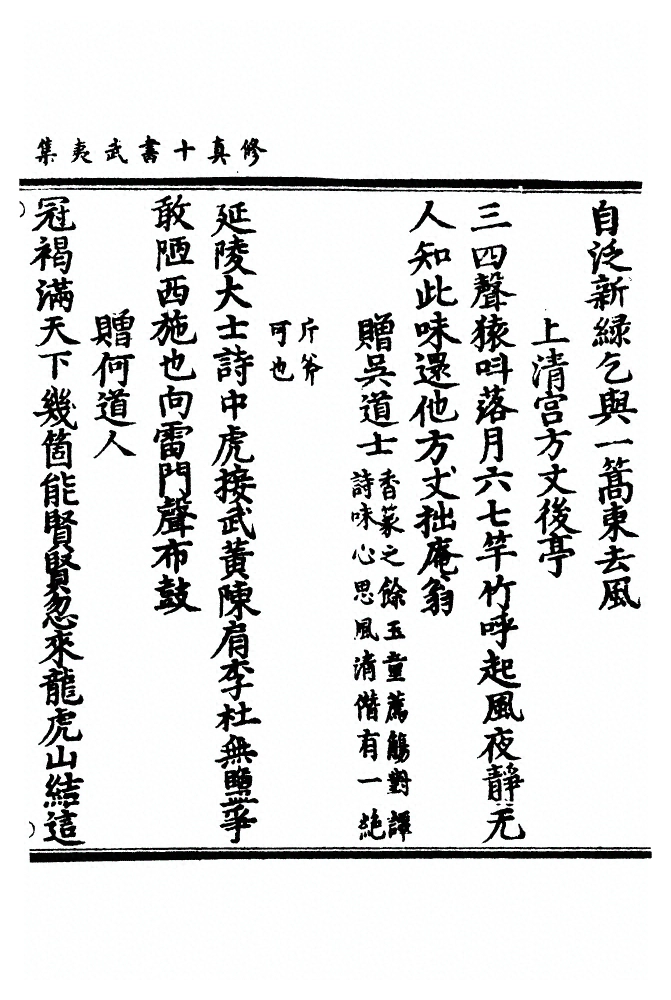 修真十書武夷集
自泛新綠乞與一篙東去風
上清宫方丈後亭
三四聲猿呌落月六七竿竹呼起風夜靜无
人知此味還他方丈拙庵翁
贈吳道士
香篆之餘玉童薦觴對譚
詩味心思風清偕有一絶
斤斧
可也
延陵大士詩中虎接武黃陳肩李杜無鹽爭
敢陋西施也向雷門聲布鼓
贈何道人
冠褐滿天下幾箇能賢賢忽來龍虎山結這